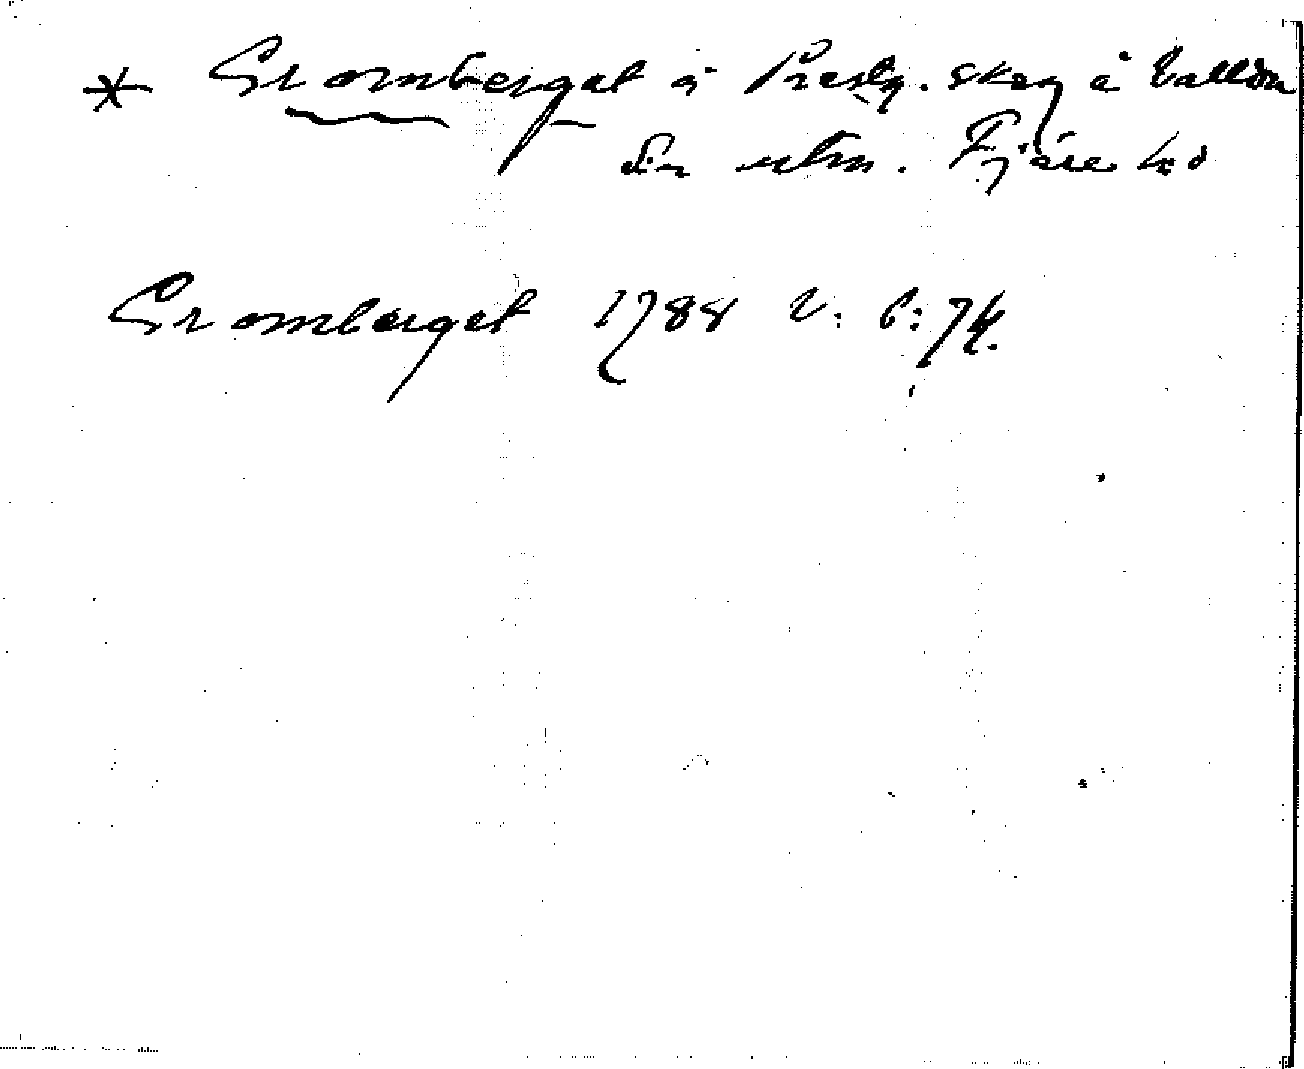 * Gromberget å Prestg. skog i Vallda
sn utm. Fjäre hd
Gromberget 1788 V: 6: 74.